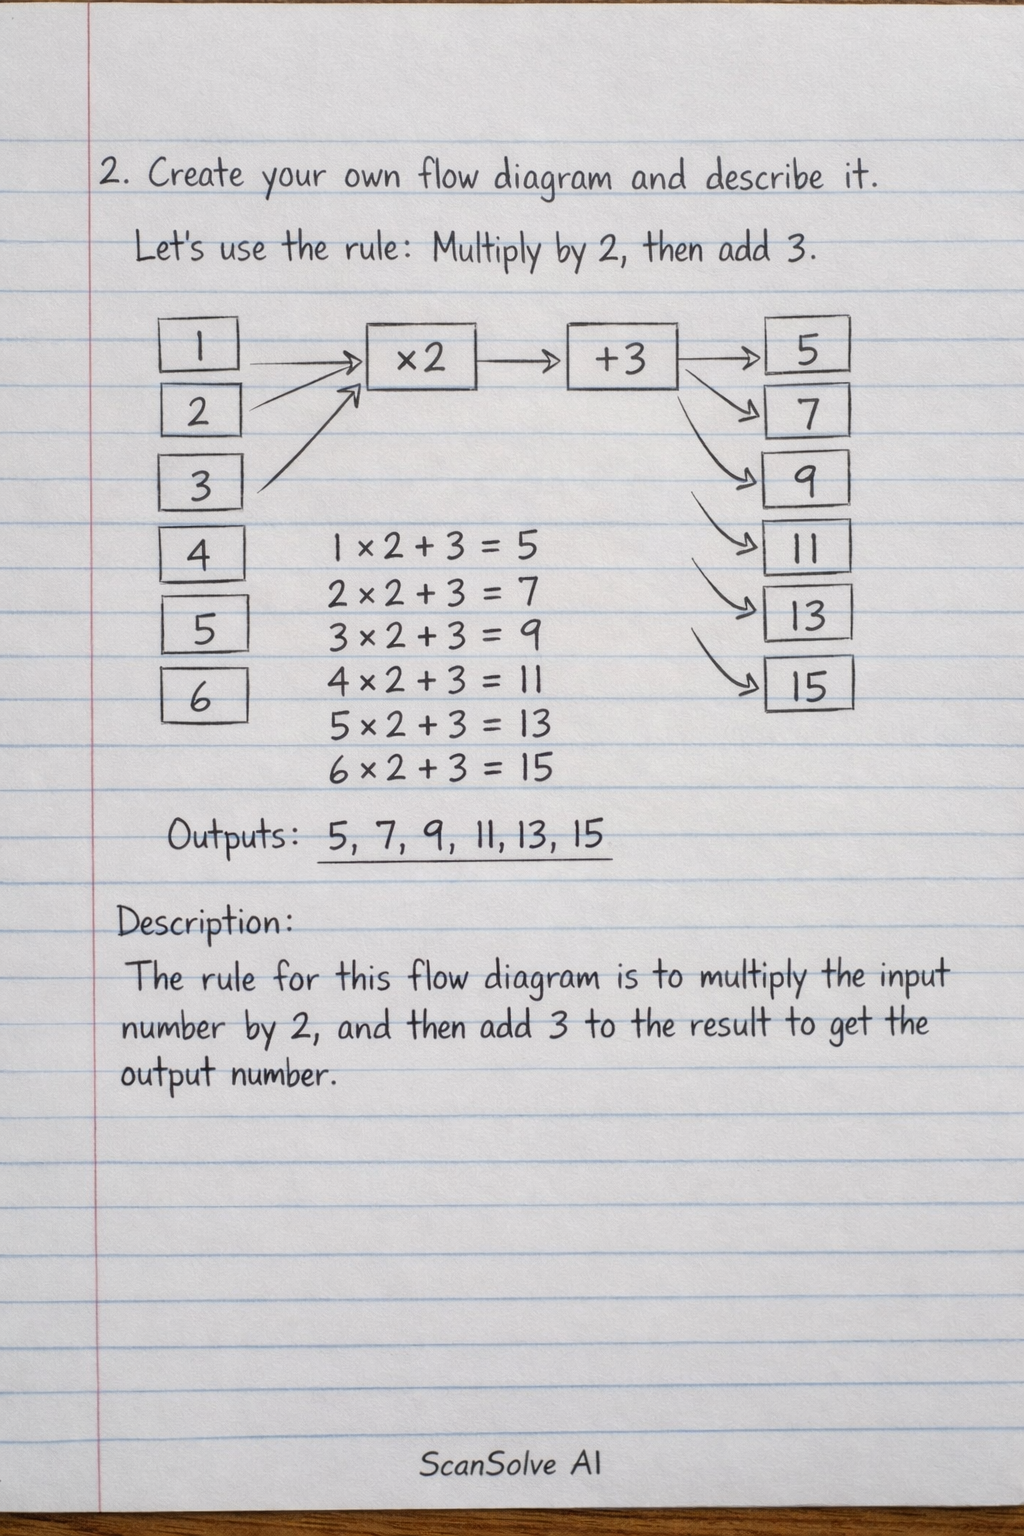 2. Create your own flow diagram and describe it.
Let's use the rule: Multiply by 2, then add 3.
1 ×2 +3 5
2 7
3 9
4 11
5 13
6 15
1 × 2 + 3 = 5
2 × 2 + 3 = 7
3 × 2 + 3 = 9
4 × 2 + 3 = 11
5 × 2 + 3 = 13
6 × 2 + 3 = 15
Outputs: 5, 7, 9, 11, 13, 15
Description:
The rule for this flow diagram is to multiply the input
number by 2, and then add 3 to the result to get the
output number.
ScanSolve AI